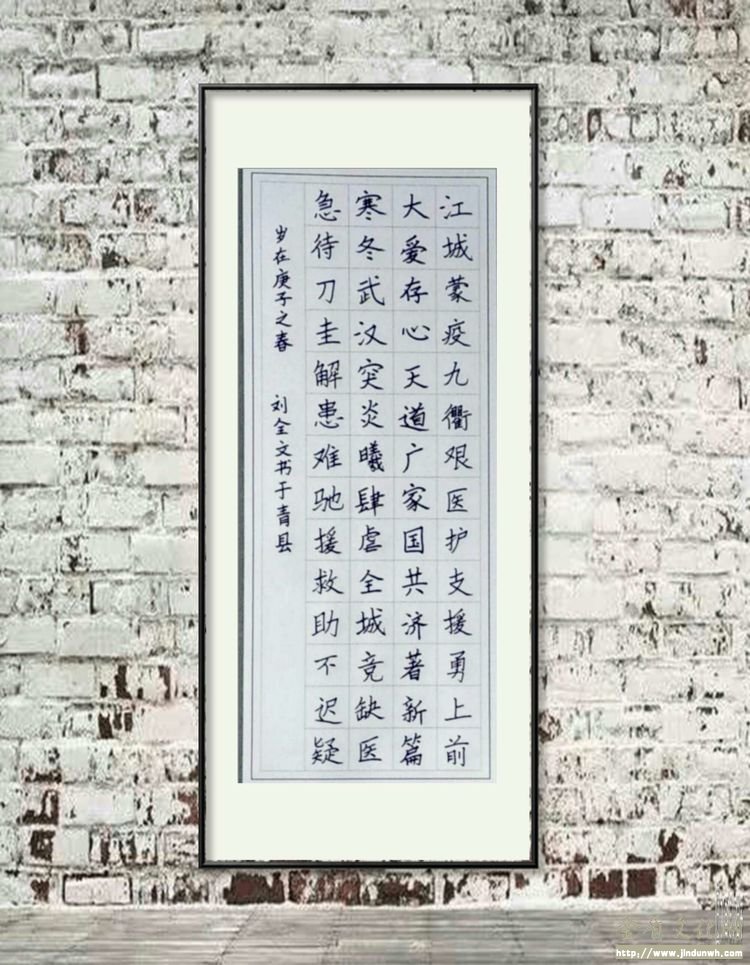 江城蒙疫九衢艰医护支援勇上前
大爱存心天道广家国共济著新篇
寒冬武汉突炎曦肆虐全城竞缺医
急待刀圭解患难驰援救助不迟疑
岁在庚子之春 刘全文书于青县
http://www.jindunwh.com